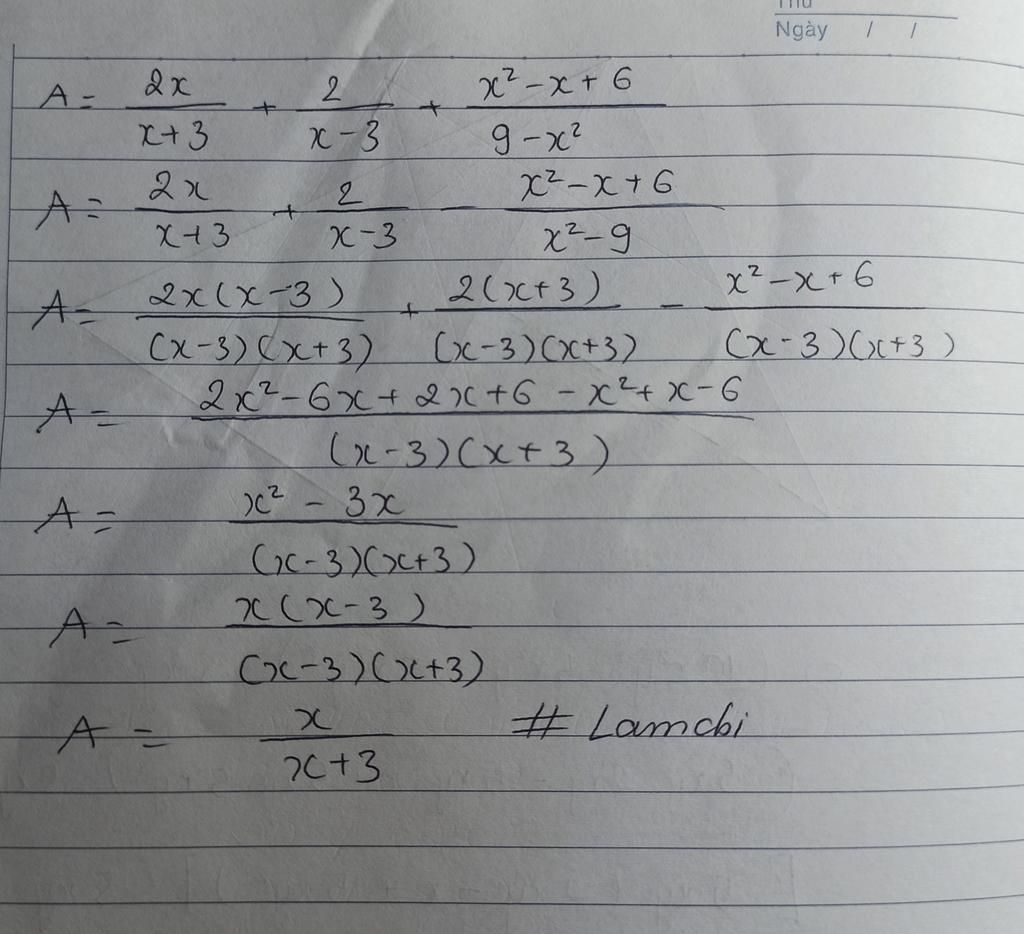 Thứ
Ngày / /
A = \frac{2x}{x+3} + \frac{2}{x-3} + \frac{x²-x+6}{9-x²}
A = \frac{2x}{x+3} + \frac{2}{x-3} - \frac{x²-x+6}{x²-9}
A = \frac{2x(x-3)}{(x-3)(x+3)} + \frac{2(x+3)}{(x-3)(x+3)} - \frac{x²-x+6}{(x-3)(x+3)}
A = \frac{2x²-6x+2x+6-x²+x-6}{(x-3)(x+3)}
A = \frac{x²-3x}{(x-3)(x+3)}
A = \frac{x(x-3)}{(x-3)(x+3)}
A = \frac{x}{x+3} # Lamchi